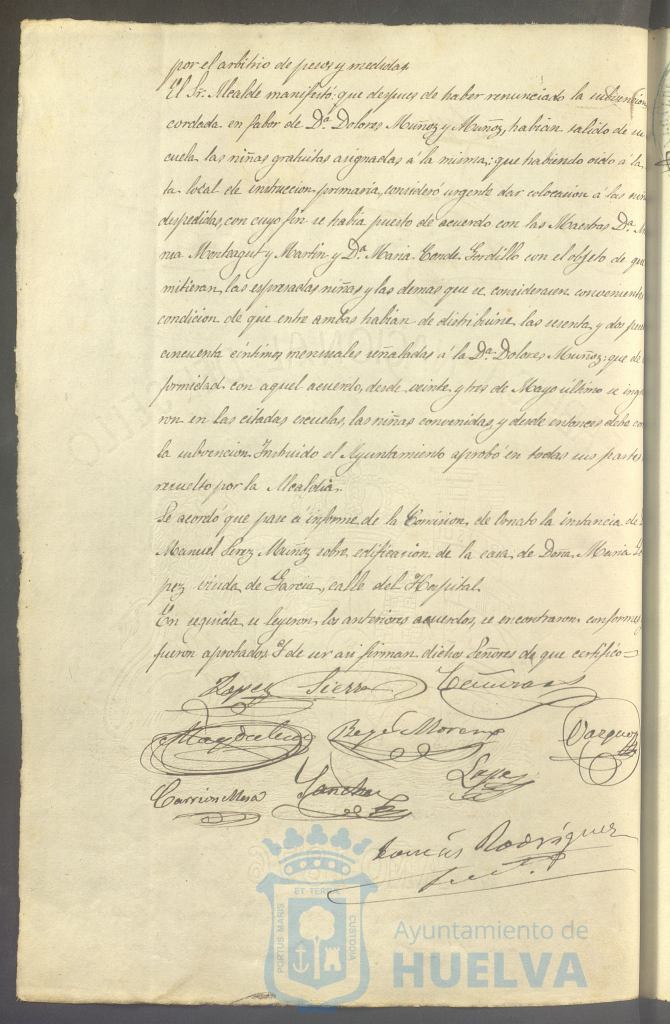 por el arbitrio de pesos y medidas.
El Sr. Alcalde manifestó: que despues de haber renunciado la subvencion
cordada en fabor de Dª Dolores Muñoz y Muñoz, habian salido de su
cuela las niñas gratuitas asignadas á la misma; que habiendo oido á la
ta local de instruccion primaria, consideró urgente dar colocacion á las niñ
despedidas, con cuyo fin se habia puesto de acuerdo con las Maestras Dª
ria Montagut y Martin y Dª Maria Conde Gordillo con el objeto de que
mitieran las espresadas niñas y las demas que se considerasen conveniente
condicion de que entre ambas habian de distribuirse las sesenta y dos pes
cincuenta céntimos mensuales señaladas á la Dª Dolores Muñoz; que de
formidad con aquel acuerdo, desde veinte y tres de Mayo último se ingr
ron en las citadas escuelas, las niñas convenidas, y desde entonces debe co
la subvencion. Instruido el Ayuntamiento aprobó en todas sus partes
resuelto por la Alcaldia.
Se acordó que pase á informe de la Comision de Ornato la instancia de
Manuel Perez Muñoz sobre edificacion de la casa de Doña Maria
pez viuda de Garcia, calle del Hospital.
En seguida se leyeron los anteriores acuerdos, se encontraron conformes
fueron aprobados. Y de ser asi firman dichos Señores de que certifico=
Lopez Sierra
Magdalena Moreno Vazquez
Carrion Mesa Sanchez Lopez
Tomás Rodriguez
PORTUS MARIS ET TERRÆ CUSTODIA
Ayuntamiento de
HUELVA